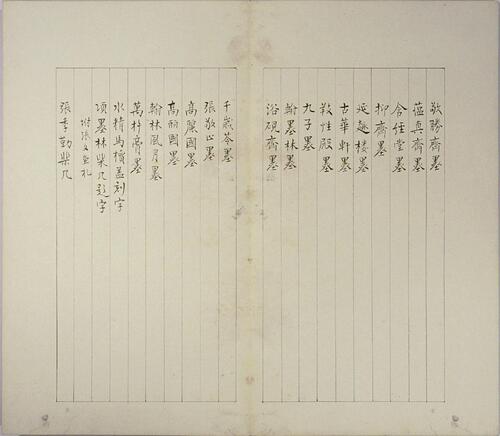 敬勝齋墨
蘊真齋墨
含經堂墨
抑齋墨
延趣樓墨
古華軒墨
敬性殿墨
九子墨
翰墨林墨
浴硯齋墨
千歲苓墨
張敬止墨
高麗國墨
高麗國墨
翰林風月墨
萬杵膏墨
水精馬櫝蓋刻字
項墨林柴几題字
附張文魚札
張季勤柴几